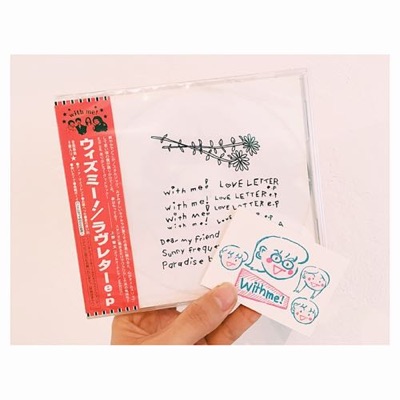 with me!
ウィズミー!／ラヴレターe.p
with me! LOVE LETTER e.p
with me! LOVE LETTER e.p
with me! LOVE LETTER e.p
with me!
Dear my Friend
Sunny
Paradise
With me!